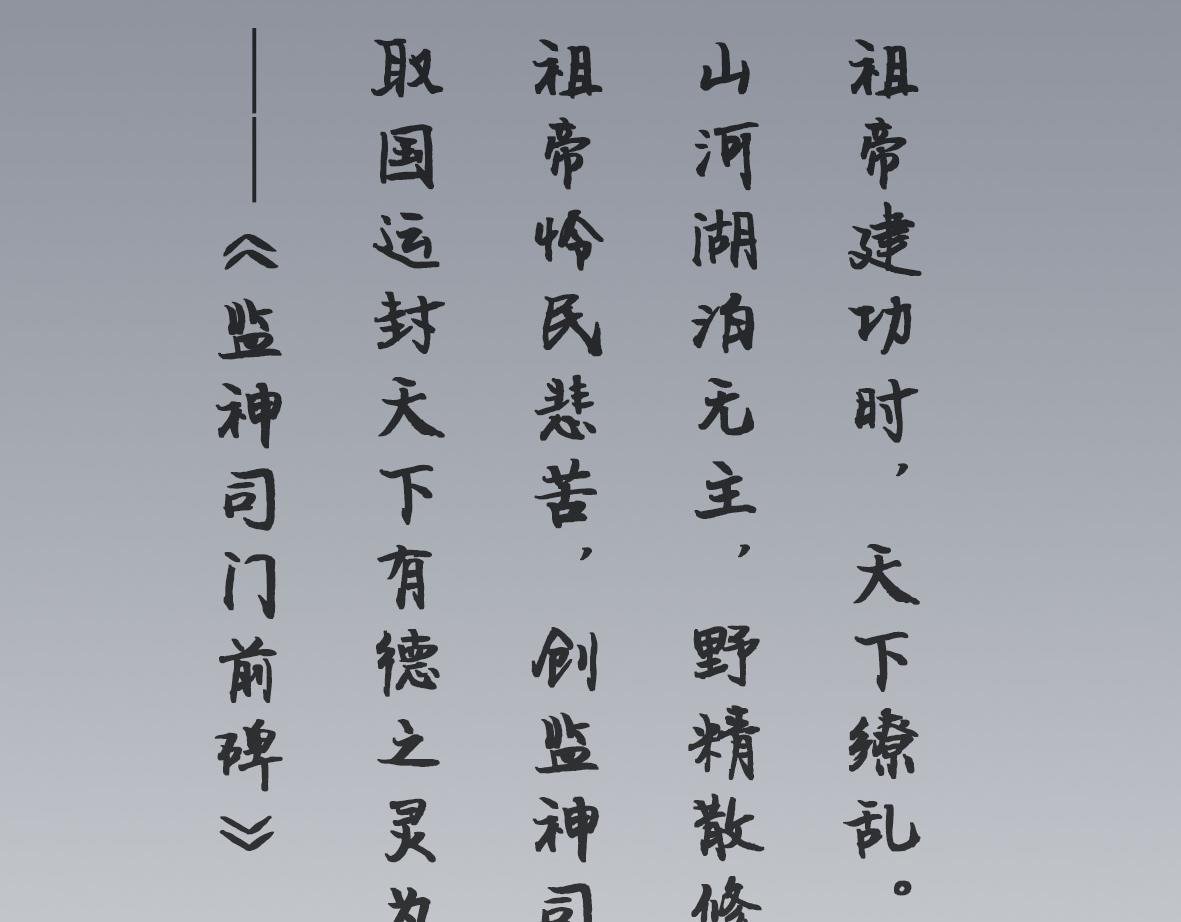 祖帝建功时，天下缭乱。
山河湖泊无主，野精散修
祖帝怜民悲苦，创监神司
取国运封天下有德之灵为
——《监神司门前碑》